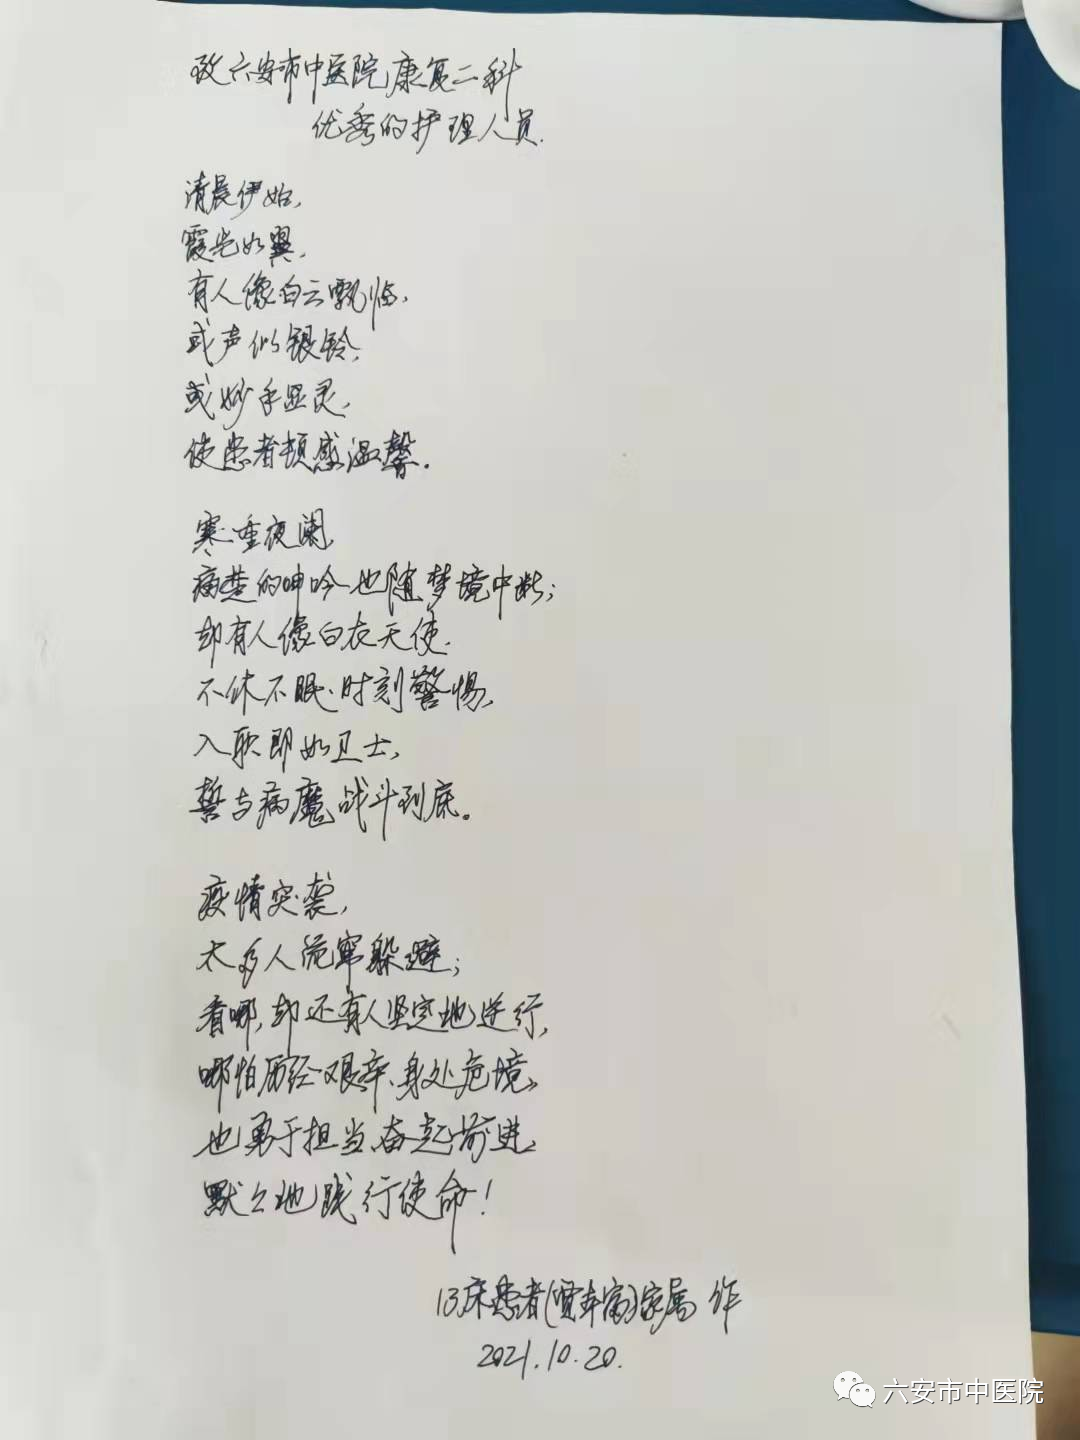 致六安市中医院康复二科
优秀的护理人员.
清晨伊始,
霞光如翼,
有人像白云飘临,
或声似银铃,
或妙手显灵,
使患者顿感温馨.
寒重夜阑,
病楚的呻吟也随梦境中断;
却有人像白衣天使.
不休不眠、时刻警惕,
入职即如卫士,
誓与病魔战斗到底。
疫情突袭,
太多人逃窜躲避;
看哪,却还有人坚定地逆行,
哪怕历经艰辛、身处危境,
也勇于担当,奋起前进,
默々地践行使命!
13床患者(贾丰富)家属 作
2021.10.20.
六安市中医院